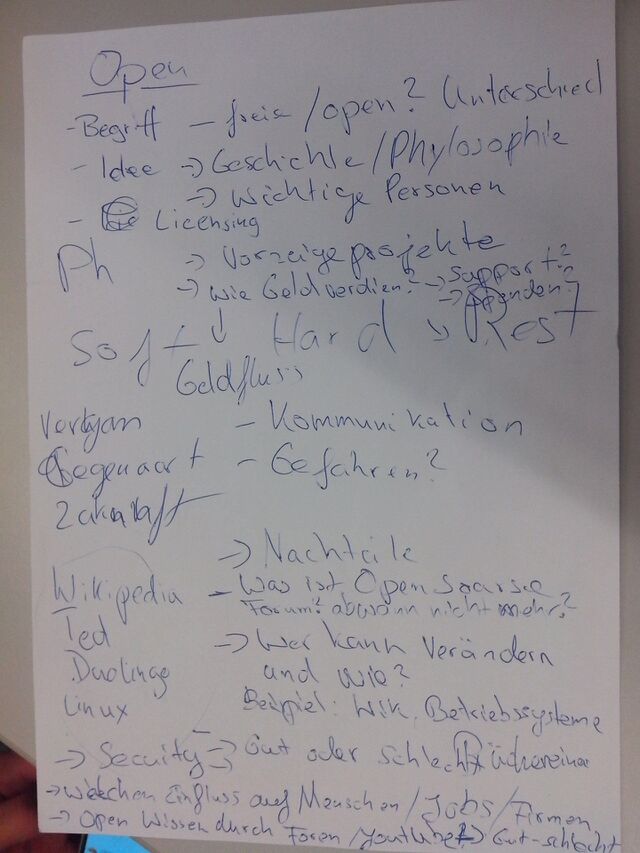 Open
- Begriff - freie/open? Unterschied
- Idee -> Geschichte/Phylosophie
-> Wichtige Personen
- Licensing
Ph -> Vorzeigeprojekte
-> Wie Geldverdien? -> Support?
-> Spenden?
Soft ↓ Hard -> Rest
Geldfluss
Vergan - Kommunikation
Gegenwart - Gefahren?
Zukunft
-> Nachteile
Wikipedia - Was ist Open Soarse
Forum? abwann nicht mehr?
Ted -> Wer kann Verändern
Duolingo und wie?
Linux Beispiel: Wik, Betriebssysteme
-> Security -> Gut oder schlecht
-> welchen Einfluss auf Menschen/Jobs/Firmen
-> Open Wissen durch Foren/Youtube? -> Gut-schlecht